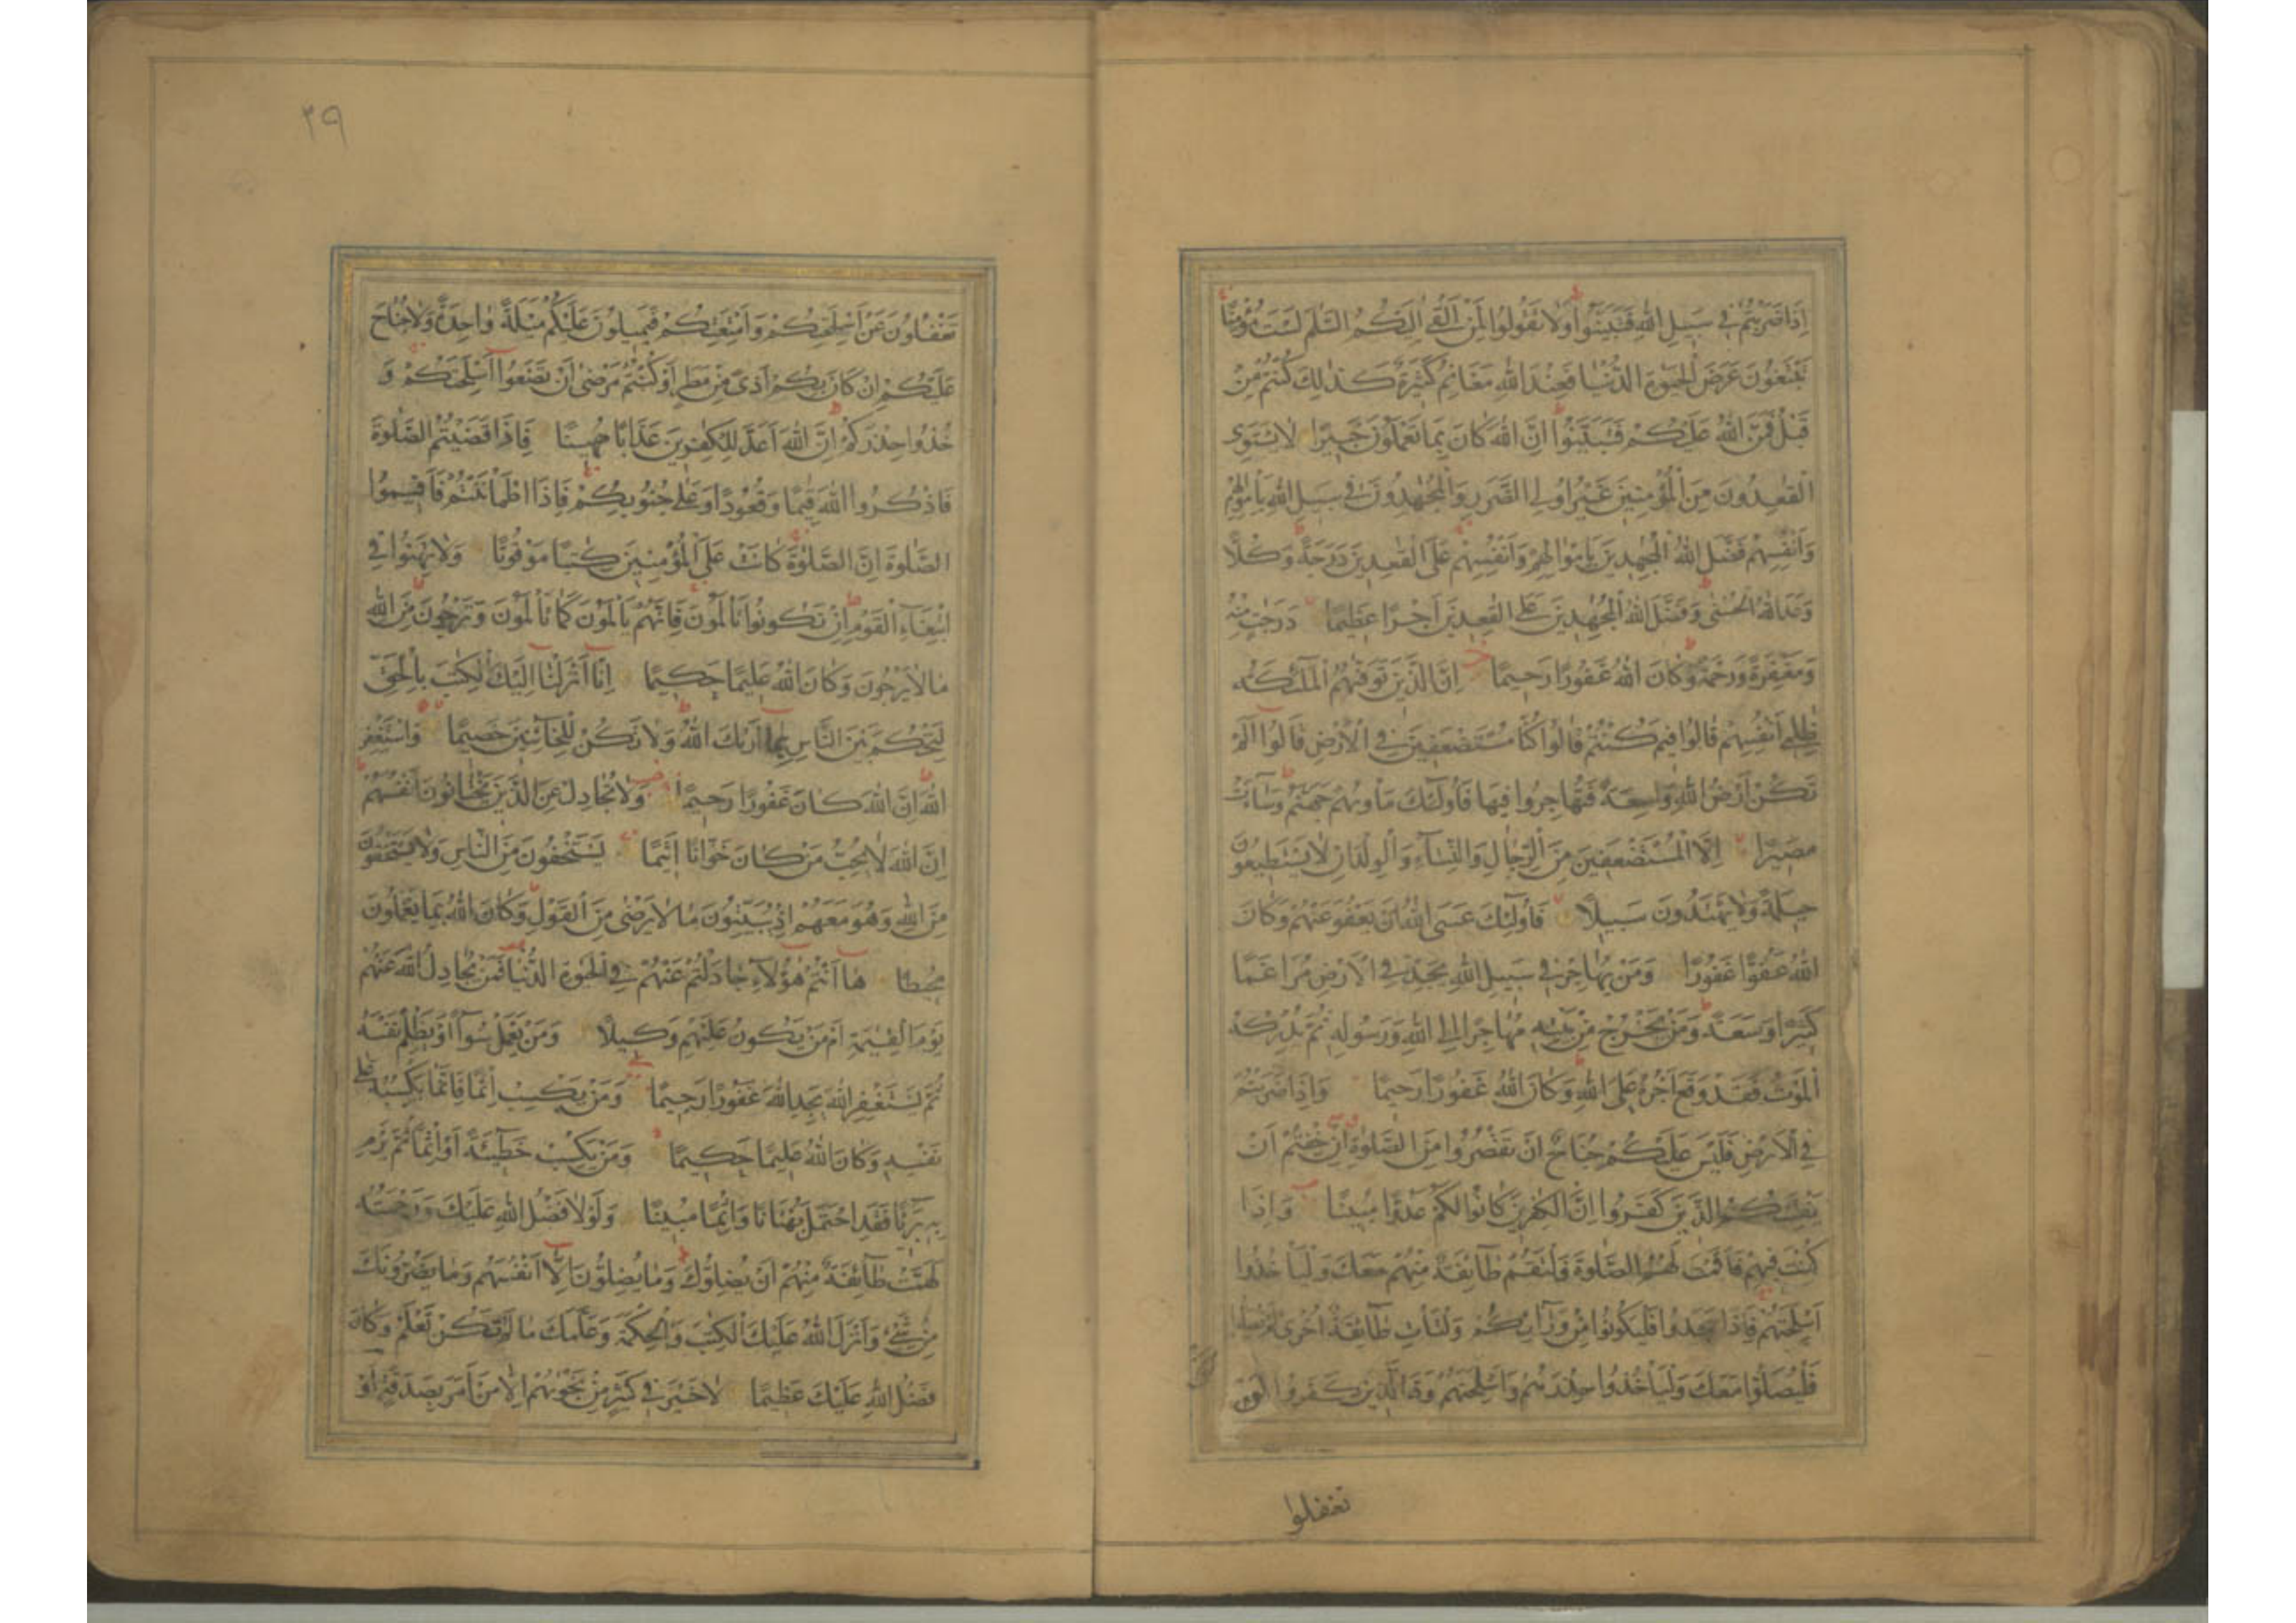 اِذَا ضَرَبْتُمْ فِي سَبِيلِ اللّٰهِ فَتَبَيَّنُوا وَلَا تَقُولُوا لِمَنْ اَلْقٰى اِلَيْكُمُ السَّلٰمَ لَسْتَ مُؤْمِنًا
تَبْتَغُونَ عَرَضَ الْحَيٰوةِ الدُّنْيَا فَعِنْدَ اللّٰهِ مَغَانِمُ كَثِيرَةٌ كَذٰلِكَ كُنْتُمْ مِنْ
قَبْلُ فَمَنَّ اللّٰهُ عَلَيْكُمْ فَتَبَيَّنُوا اِنَّ اللّٰهَ كَانَ بِمَا تَعْمَلُونَ خَبِيرًا لَا يَسْتَوِى
الْقٰعِدُونَ مِنَ الْمُؤْمِنِينَ غَيْرُ اُولِى الضَّرَرِ وَالْمُجٰهِدُونَ فِي سَبِيلِ اللّٰهِ بِاَمْوَالِهِمْ
وَاَنْفُسِهِمْ فَضَّلَ اللّٰهُ الْمُجٰهِدِينَ بِاَمْوَالِهِمْ وَاَنْفُسِهِمْ عَلَى الْقٰعِدِينَ دَرَجَةً وَكُلًّا
وَعَدَ اللّٰهُ الْحُسْنٰى وَفَضَّلَ اللّٰهُ الْمُجٰهِدِينَ عَلَى الْقٰعِدِينَ اَجْرًا عَظِيمًا دَرَجٰتٍ مِنْهُ
وَمَغْفِرَةً وَرَحْمَةً وَكَانَ اللّٰهُ غَفُورًا رَحِيمًا اِنَّ الَّذِينَ تَوَفّٰيهُمُ الْمَلٰٓئِكَةُ
ظٰلِمِى اَنْفُسِهِمْ قَالُوا فِيمَ كُنْتُمْ قَالُوا كُنَّا مُسْتَضْعَفِينَ فِي الْاَرْضِ قَالُوٓا اَلَمْ
تَكُنْ اَرْضُ اللّٰهِ وَاسِعَةً فَتُهَاجِرُوا فِيهَا فَاُولٰٓئِكَ مَاْوٰيهُمْ جَهَنَّمُ وَسَآءَتْ
مَصِيرًا اِلَّا الْمُسْتَضْعَفِينَ مِنَ الرِّجَالِ وَالنِّسَآءِ وَالْوِلْدَانِ لَا يَسْتَطِيعُونَ
حِيلَةً وَلَا يَهْتَدُونَ سَبِيلًا فَاُولٰٓئِكَ عَسَى اللّٰهُ اَنْ يَعْفُوَ عَنْهُمْ وَكَانَ
اللّٰهُ عَفُوًّا غَفُورًا وَمَنْ يُهَاجِرْ فِي سَبِيلِ اللّٰهِ يَجِدْ فِي الْاَرْضِ مُرَاغَمًا
كَثِيرًا وَسَعَةً وَمَنْ يَخْرُجْ مِنْ بَيْتِهِ مُهَاجِرًا اِلَى اللّٰهِ وَرَسُولِهِ ثُمَّ يُدْرِكْهُ
الْمَوْتُ فَقَدْ وَقَعَ اَجْرُهُ عَلَى اللّٰهِ وَكَانَ اللّٰهُ غَفُورًا رَحِيمًا وَاِذَا ضَرَبْتُمْ
فِي الْاَرْضِ فَلَيْسَ عَلَيْكُمْ جُنَاحٌ اَنْ تَقْصُرُوا مِنَ الصَّلٰوةِ اِنْ خِفْتُمْ اَنْ
يَفْتِنَكُمُ الَّذِينَ كَفَرُوا اِنَّ الْكٰفِرِينَ كَانُوا لَكُمْ عَدُوًّا مُبِينًا وَاِذَا
كُنْتَ فِيهِمْ فَاَقَمْتَ لَهُمُ الصَّلٰوةَ فَلْتَقُمْ طَآئِفَةٌ مِنْهُمْ مَعَكَ وَلْيَاْخُذُوا
اَسْلِحَتَهُمْ فَاِذَا سَجَدُوا فَلْيَكُونُوا مِنْ وَرَآئِكُمْ وَلْتَاْتِ طَآئِفَةٌ اُخْرٰى لَمْ يُصَلُّوا
فَلْيُصَلُّوا مَعَكَ وَلْيَاْخُذُوا حِذْرَهُمْ وَاَسْلِحَتَهُمْ وَدَّ الَّذِينَ كَفَرُوا لَوْ
تغفلوا
٣٩
تَغْفُلُونَ عَنْ اَسْلِحَتِكُمْ وَاَمْتِعَتِكُمْ فَيَمِيلُونَ عَلَيْكُمْ مَيْلَةً وَاحِدَةً وَلَا جُنَاحَ
عَلَيْكُمْ اِنْ كَانَ بِكُمْ اَذًى مِنْ مَطَرٍ اَوْ كُنْتُمْ مَرْضٰى اَنْ تَضَعُوٓا اَسْلِحَتَكُمْ وَ
خُذُوا حِذْرَكُمْ اِنَّ اللّٰهَ اَعَدَّ لِلْكٰفِرِينَ عَذَابًا مُهِينًا فَاِذَا قَضَيْتُمُ الصَّلٰوةَ
فَاذْكُرُوا اللّٰهَ قِيٰمًا وَقُعُودًا وَعَلٰى جُنُوبِكُمْ فَاِذَا اطْمَاْنَنْتُمْ فَاَقِيمُوا
الصَّلٰوةَ اِنَّ الصَّلٰوةَ كَانَتْ عَلَى الْمُؤْمِنِينَ كِتٰبًا مَوْقُوتًا وَلَا تَهِنُوا فِي
ابْتِغَآءِ الْقَوْمِ اِنْ تَكُونُوا تَاْلَمُونَ فَاِنَّهُمْ يَاْلَمُونَ كَمَا تَاْلَمُونَ وَتَرْجُونَ مِنَ اللّٰهِ
مَا لَا يَرْجُونَ وَكَانَ اللّٰهُ عَلِيمًا حَكِيمًا اِنَّٓا اَنْزَلْنَٓا اِلَيْكَ الْكِتٰبَ بِالْحَقِّ
لِتَحْكُمَ بَيْنَ النَّاسِ بِمَٓا اَرٰيكَ اللّٰهُ وَلَا تَكُنْ لِلْخَآئِنِينَ خَصِيمًا وَاسْتَغْفِرِ
اللّٰهَ اِنَّ اللّٰهَ كَانَ غَفُورًا رَحِيمًا وَلَا تُجَادِلْ عَنِ الَّذِينَ يَخْتَانُونَ اَنْفُسَهُمْ
اِنَّ اللّٰهَ لَا يُحِبُّ مَنْ كَانَ خَوَّانًا اَثِيمًا يَسْتَخْفُونَ مِنَ النَّاسِ وَلَا يَسْتَخْفُونَ
مِنَ اللّٰهِ وَهُوَ مَعَهُمْ اِذْ يُبَيِّتُونَ مَا لَا يَرْضٰى مِنَ الْقَوْلِ وَكَانَ اللّٰهُ بِمَا يَعْمَلُونَ
مُحِيطًا هَٓا اَنْتُمْ هٰٓؤُلَآءِ جَادَلْتُمْ عَنْهُمْ فِي الْحَيٰوةِ الدُّنْيَا فَمَنْ يُجَادِلُ اللّٰهَ عَنْهُمْ
يَوْمَ الْقِيٰمَةِ اَمْ مَنْ يَكُونُ عَلَيْهِمْ وَكِيلًا وَمَنْ يَعْمَلْ سُوٓءًا اَوْ يَظْلِمْ نَفْسَهُ
ثُمَّ يَسْتَغْفِرِ اللّٰهَ يَجِدِ اللّٰهَ غَفُورًا رَحِيمًا وَمَنْ يَكْسِبْ اِثْمًا فَاِنَّمَا يَكْسِبُهُ عَلٰى
نَفْسِهِ وَكَانَ اللّٰهُ عَلِيمًا حَكِيمًا وَمَنْ يَكْسِبْ خَطِٓيئَةً اَوْ اِثْمًا ثُمَّ يَرْمِ
بِهِ بَرِٓيئًا فَقَدِ احْتَمَلَ بُهْتَانًا وَاِثْمًا مُبِينًا وَلَوْلَا فَضْلُ اللّٰهِ عَلَيْكَ وَرَحْمَتُهُ
لَهَمَّتْ طَآئِفَةٌ مِنْهُمْ اَنْ يُضِلُّوكَ وَمَا يُضِلُّونَ اِلَّٓا اَنْفُسَهُمْ وَمَا يَضُرُّونَكَ
مِنْ شَيْءٍ وَاَنْزَلَ اللّٰهُ عَلَيْكَ الْكِتٰبَ وَالْحِكْمَةَ وَعَلَّمَكَ مَا لَمْ تَكُنْ تَعْلَمُ وَكَانَ
فَضْلُ اللّٰهِ عَلَيْكَ عَظِيمًا لَا خَيْرَ فِي كَثِيرٍ مِنْ نَجْوٰيهُمْ اِلَّا مَنْ اَمَرَ بِصَدَقَةٍ اَوْ